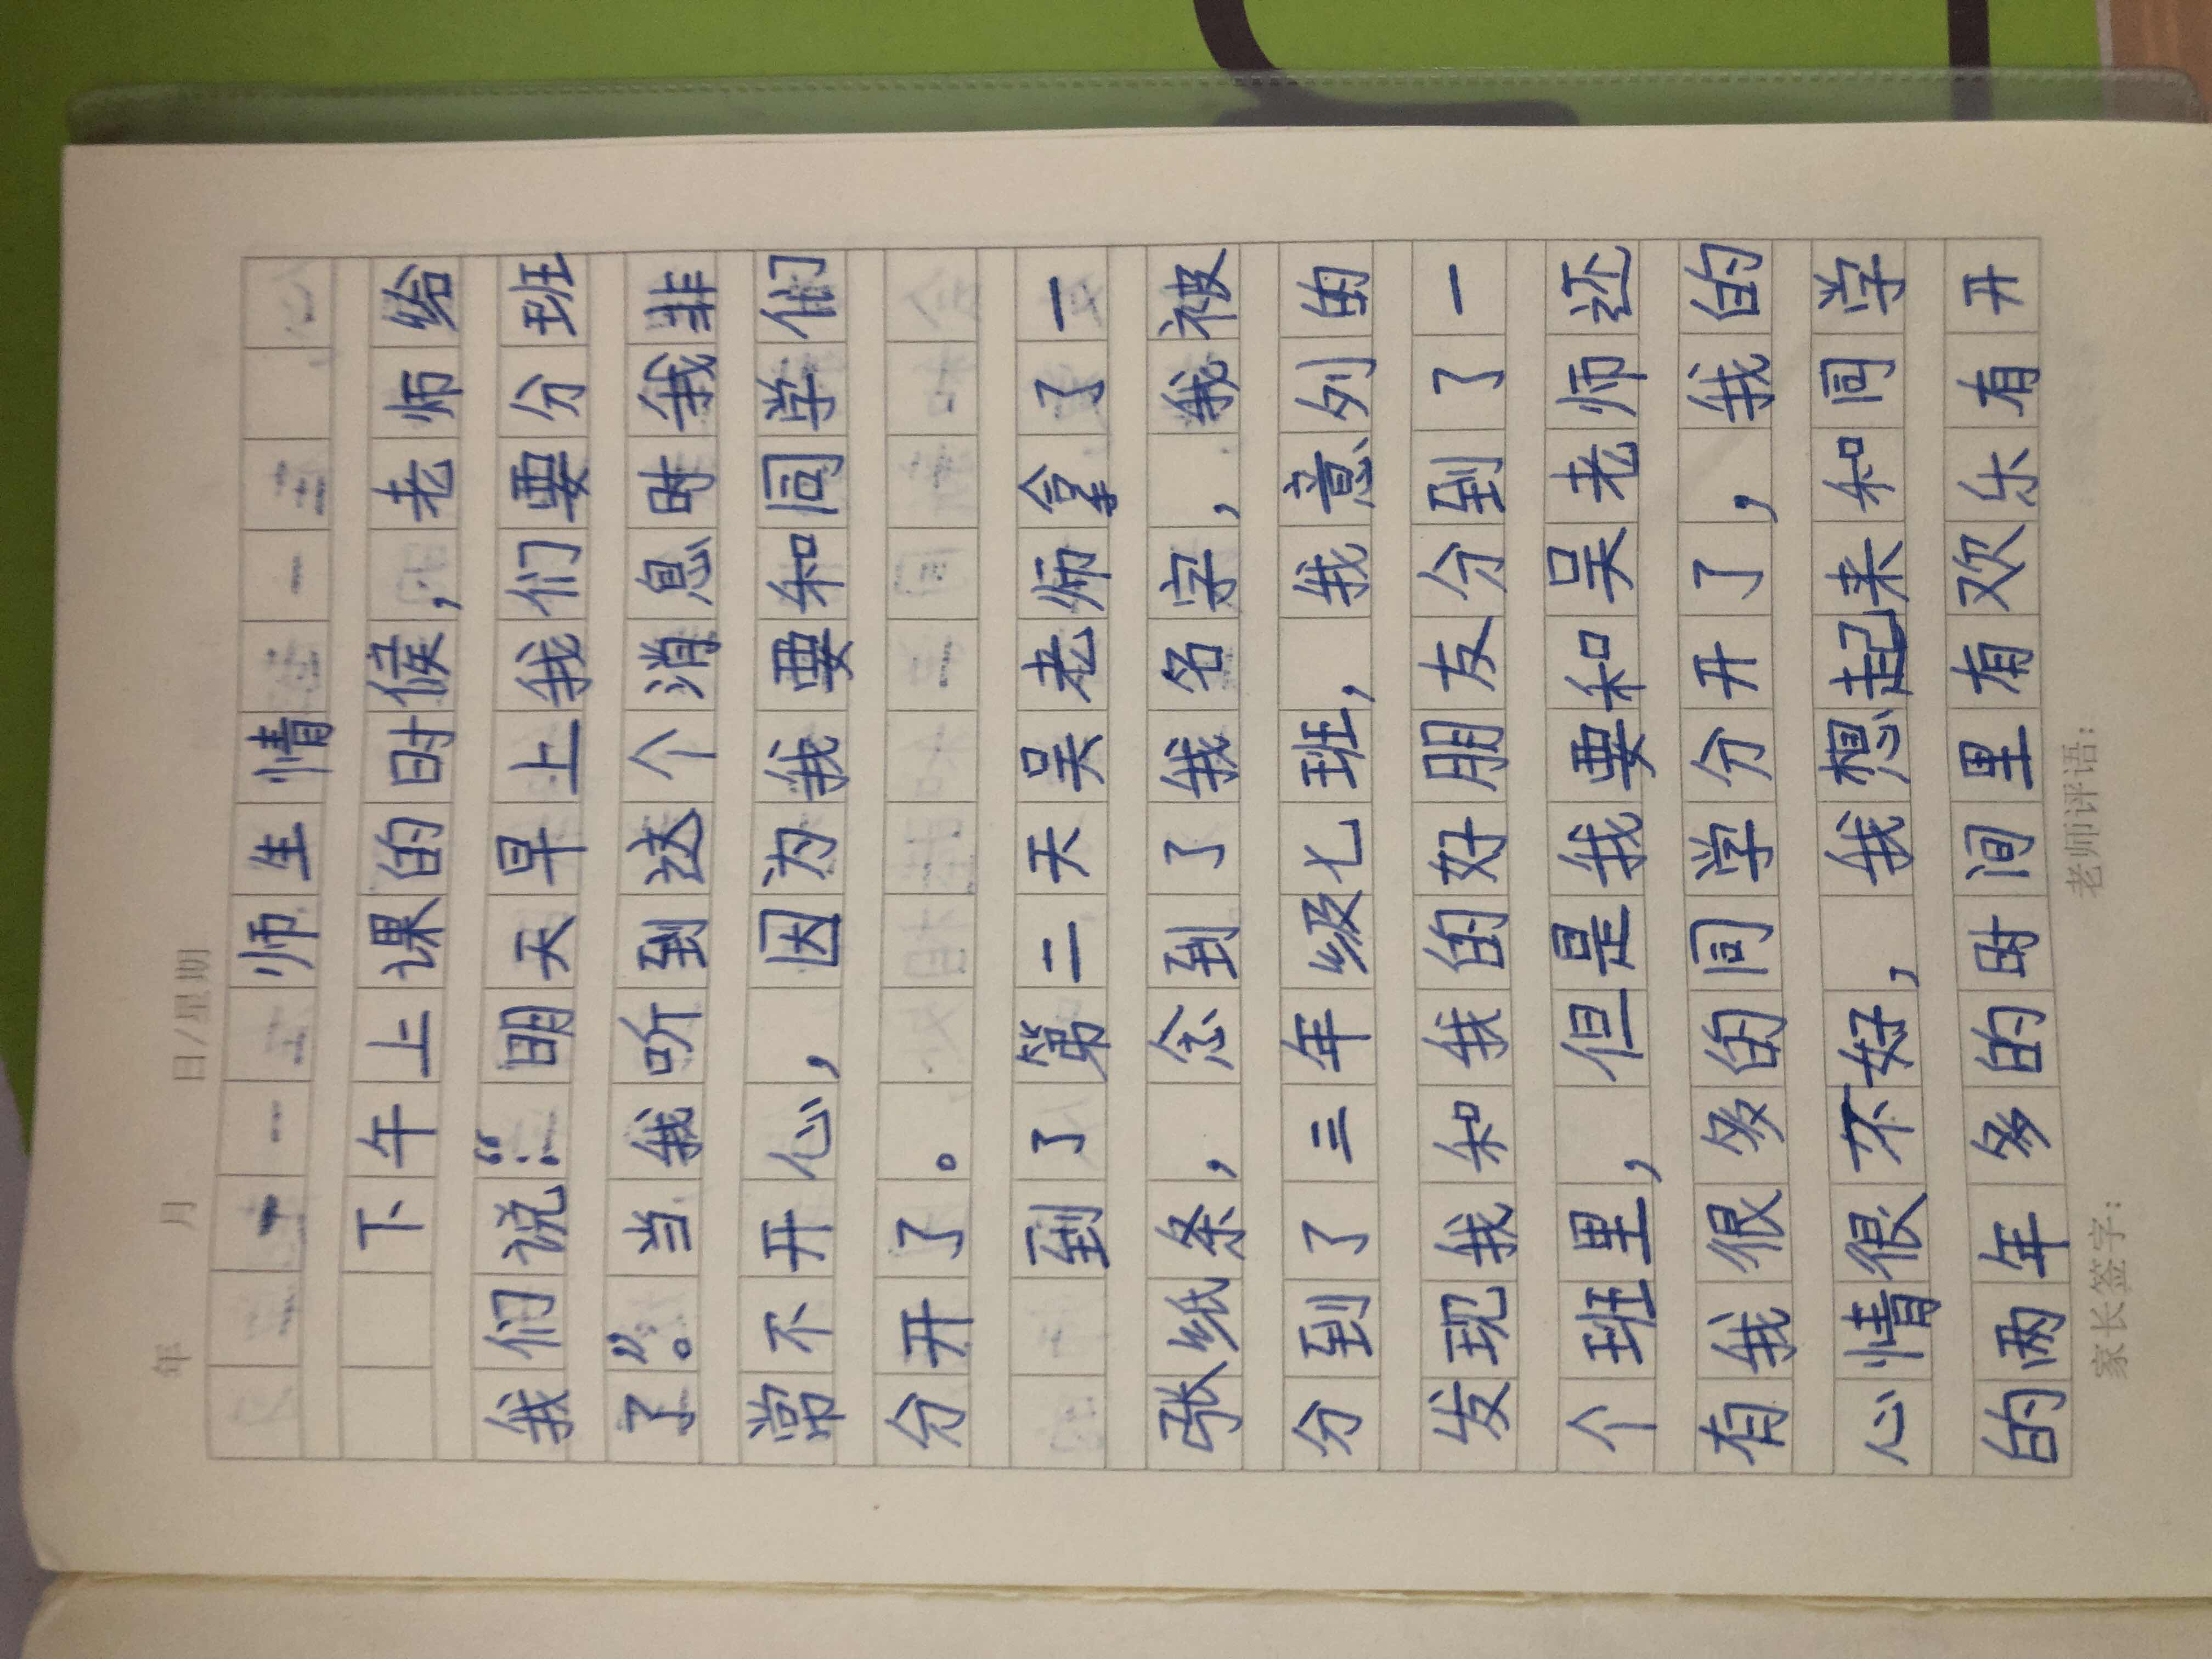 年 月 日/星期
师生情
下午上课的时候,老师给
我们说:“明天早上我们要分班
了”。当我听到这个消息时我非
常不开心,因为我要和同学们
分开了。
到了第二天吴老师拿了一
张纸条,念到了我名字,我被
分到了三年级七班,我意列的
发现我和我的好朋友分到了一
个班里,但是我要和吴老师还
有我很多的同学分开了,我的
心情很不好,我想起来和同学
的两年多的时间里有欢乐有开
家长签字: 老师评语: